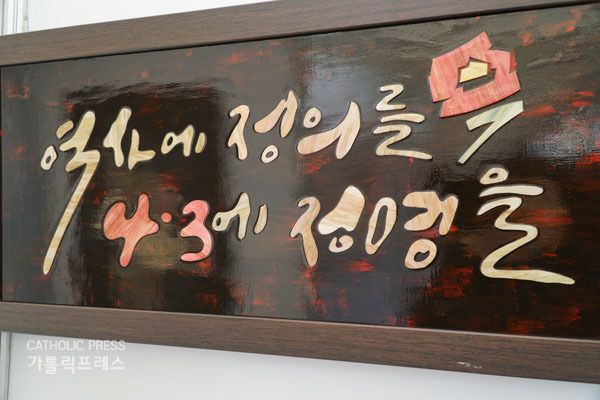 역사에 정의를
4·3에 정명을
CATHOLIC PRESS
가톨릭프레스